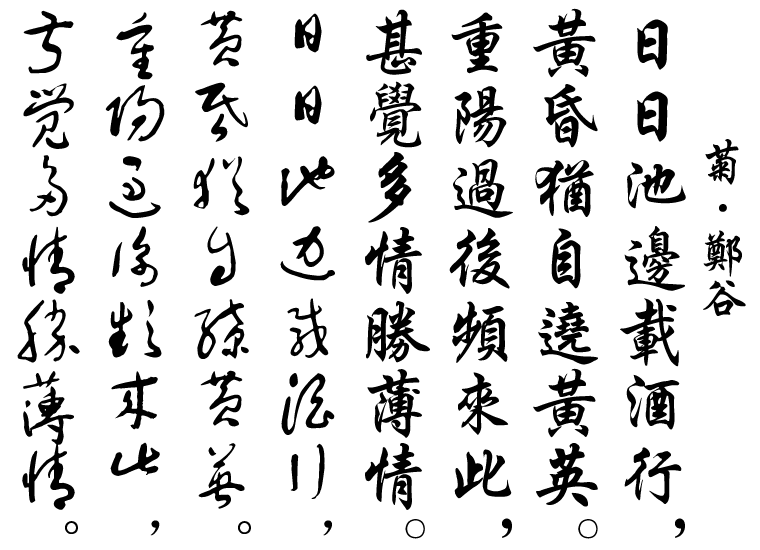 菊・鄭谷
日日池邊載酒行，
黃昏猶自遶黃英。
重陽過後頻來此，
甚覺多情勝薄情。
日日池邊載酒行，
黃昏猶自繞黃英。
重陽過後頻來此，
甚覺多情勝薄情。